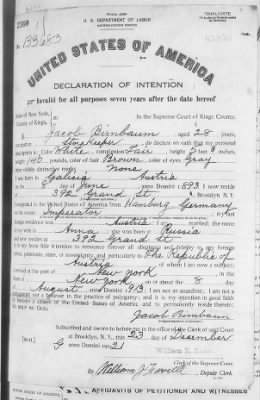 TRIPLICATE
U. S. DEPARTMENT OF LABOR
NATURALIZATION SERVICE
No. 133683
UNITED STATES OF AMERICA
DECLARATION OF INTENTION
Invalid for all purposes seven years after the date hereof
State of New York,
County of Kings,
In the Supreme Court of Kings County.
I, Jacob Birnbaum, aged 28 years,
occupation Storekeeper, do declare on oath that my personal
description is: Color White, complexion Fair, height 5 feet inches,
weight 140 pounds, color of hair Brown, color of eyes Gray
other visible distinctive marks None
I was born in Galicia Austria
on the 8 day of June, anno Domini 1893; I now reside
at 392 Grand St, Brooklyn, N.Y.
I emigrated to the United States of America from Hamburg Germany
on the vessel Imperator
Austria; I am married; the name
of my wife is Anna; she was born in Russia
and now resides at 392 Grand St.
It is my bona fide intention to renounce forever all allegiance and fidelity to any foreign
prince, potentate, state, or sovereignty, and particularly to The Republic of
Austria, of whom I am now a subject;
I arrived at the port of New York, in the
State of New York, on or about the 8 day
of August, anno Domini 1913; I am not an anarchist; I am not a
polygamist nor a believer in the practice of polygamy; and it is my intention in good faith
to become a citizen of the United States of America and to permanently reside therein:
SO HELP ME GOD.
Jacob Birnbaum
Subscribed and sworn to before me in the office of the Clerk of said Court
at Brooklyn, N.Y., this 23 day of December
anno Domini 1921
[SEAL]
Clerk of the Supreme Court.
Deputy Clerk.
AFFIDAVITS OF PETITIONER AND WITNESSES